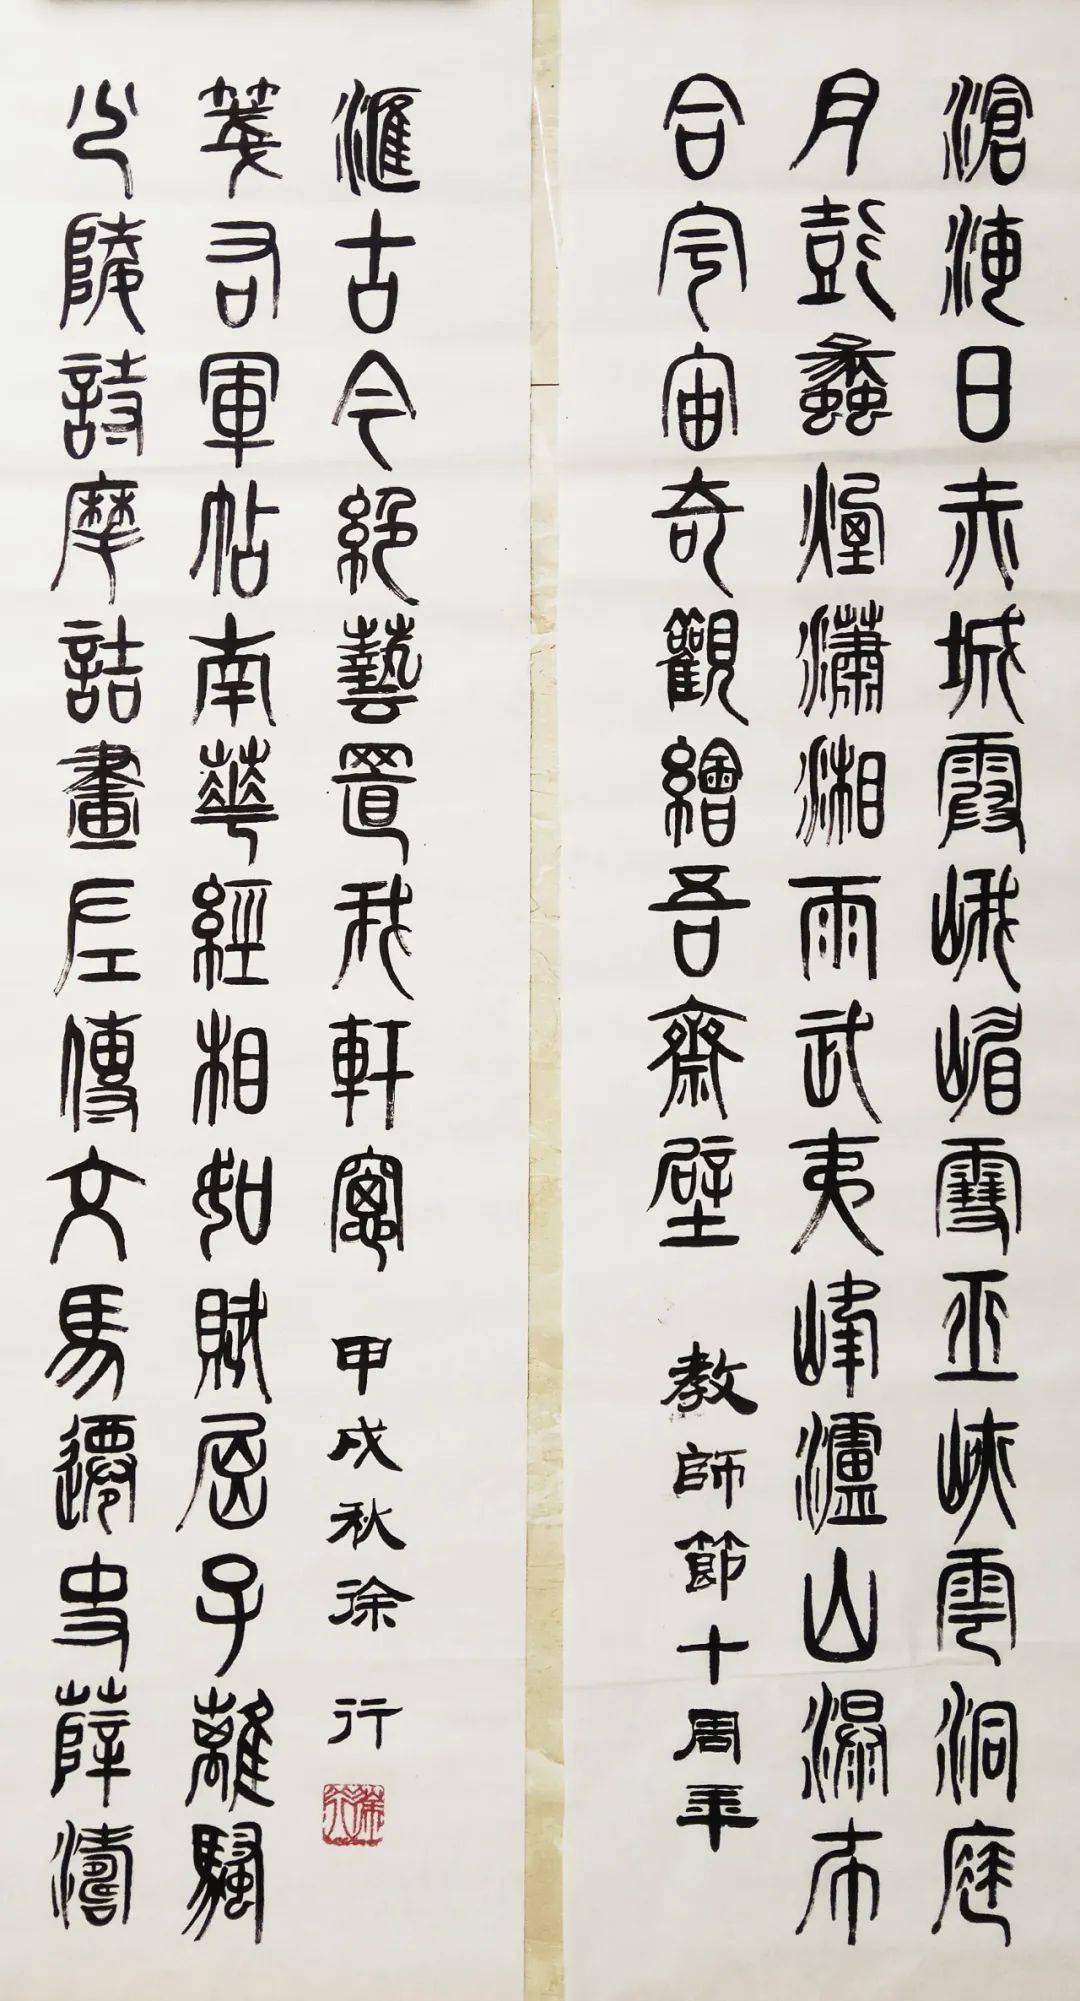 滄海日赤城霞峨嵋雪巫峽雲洞庭
月彭蠡煙瀟湘雨武夷峰瀘山瀑布
合宇宙奇觀繪吾齋壁 教師節十周年
少陵詩摩詰畫左傳文馬遷史薛濤
箋右軍帖南華經相如賦屈子離騷
滙古今絕藝置我軒窗 甲戌秋徐行
徐行